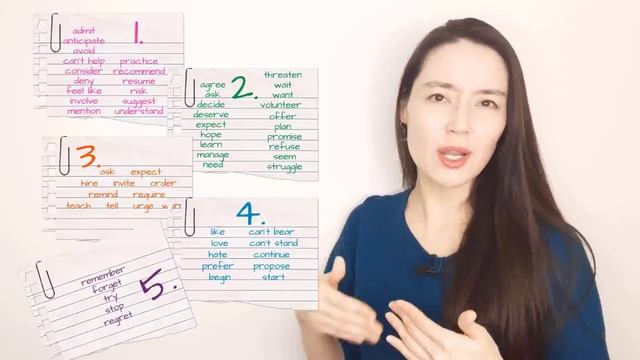 1.
admit
anticipate
avoid
can't help practice
consider recommend
deny resume
feel like risk
involve suggest
mention understand
2.
threaten
agree wait
ask want
decide volunteer
deserve offer
expect plan
hope promise
learn refuse
manage seem
need struggle
3.
ask expect
hire invite order
remind require
teach tell urge
4.
like can't bear
love can't stand
hate continue
prefer propose
begin start
5.
remember
forget
try
stop
regret